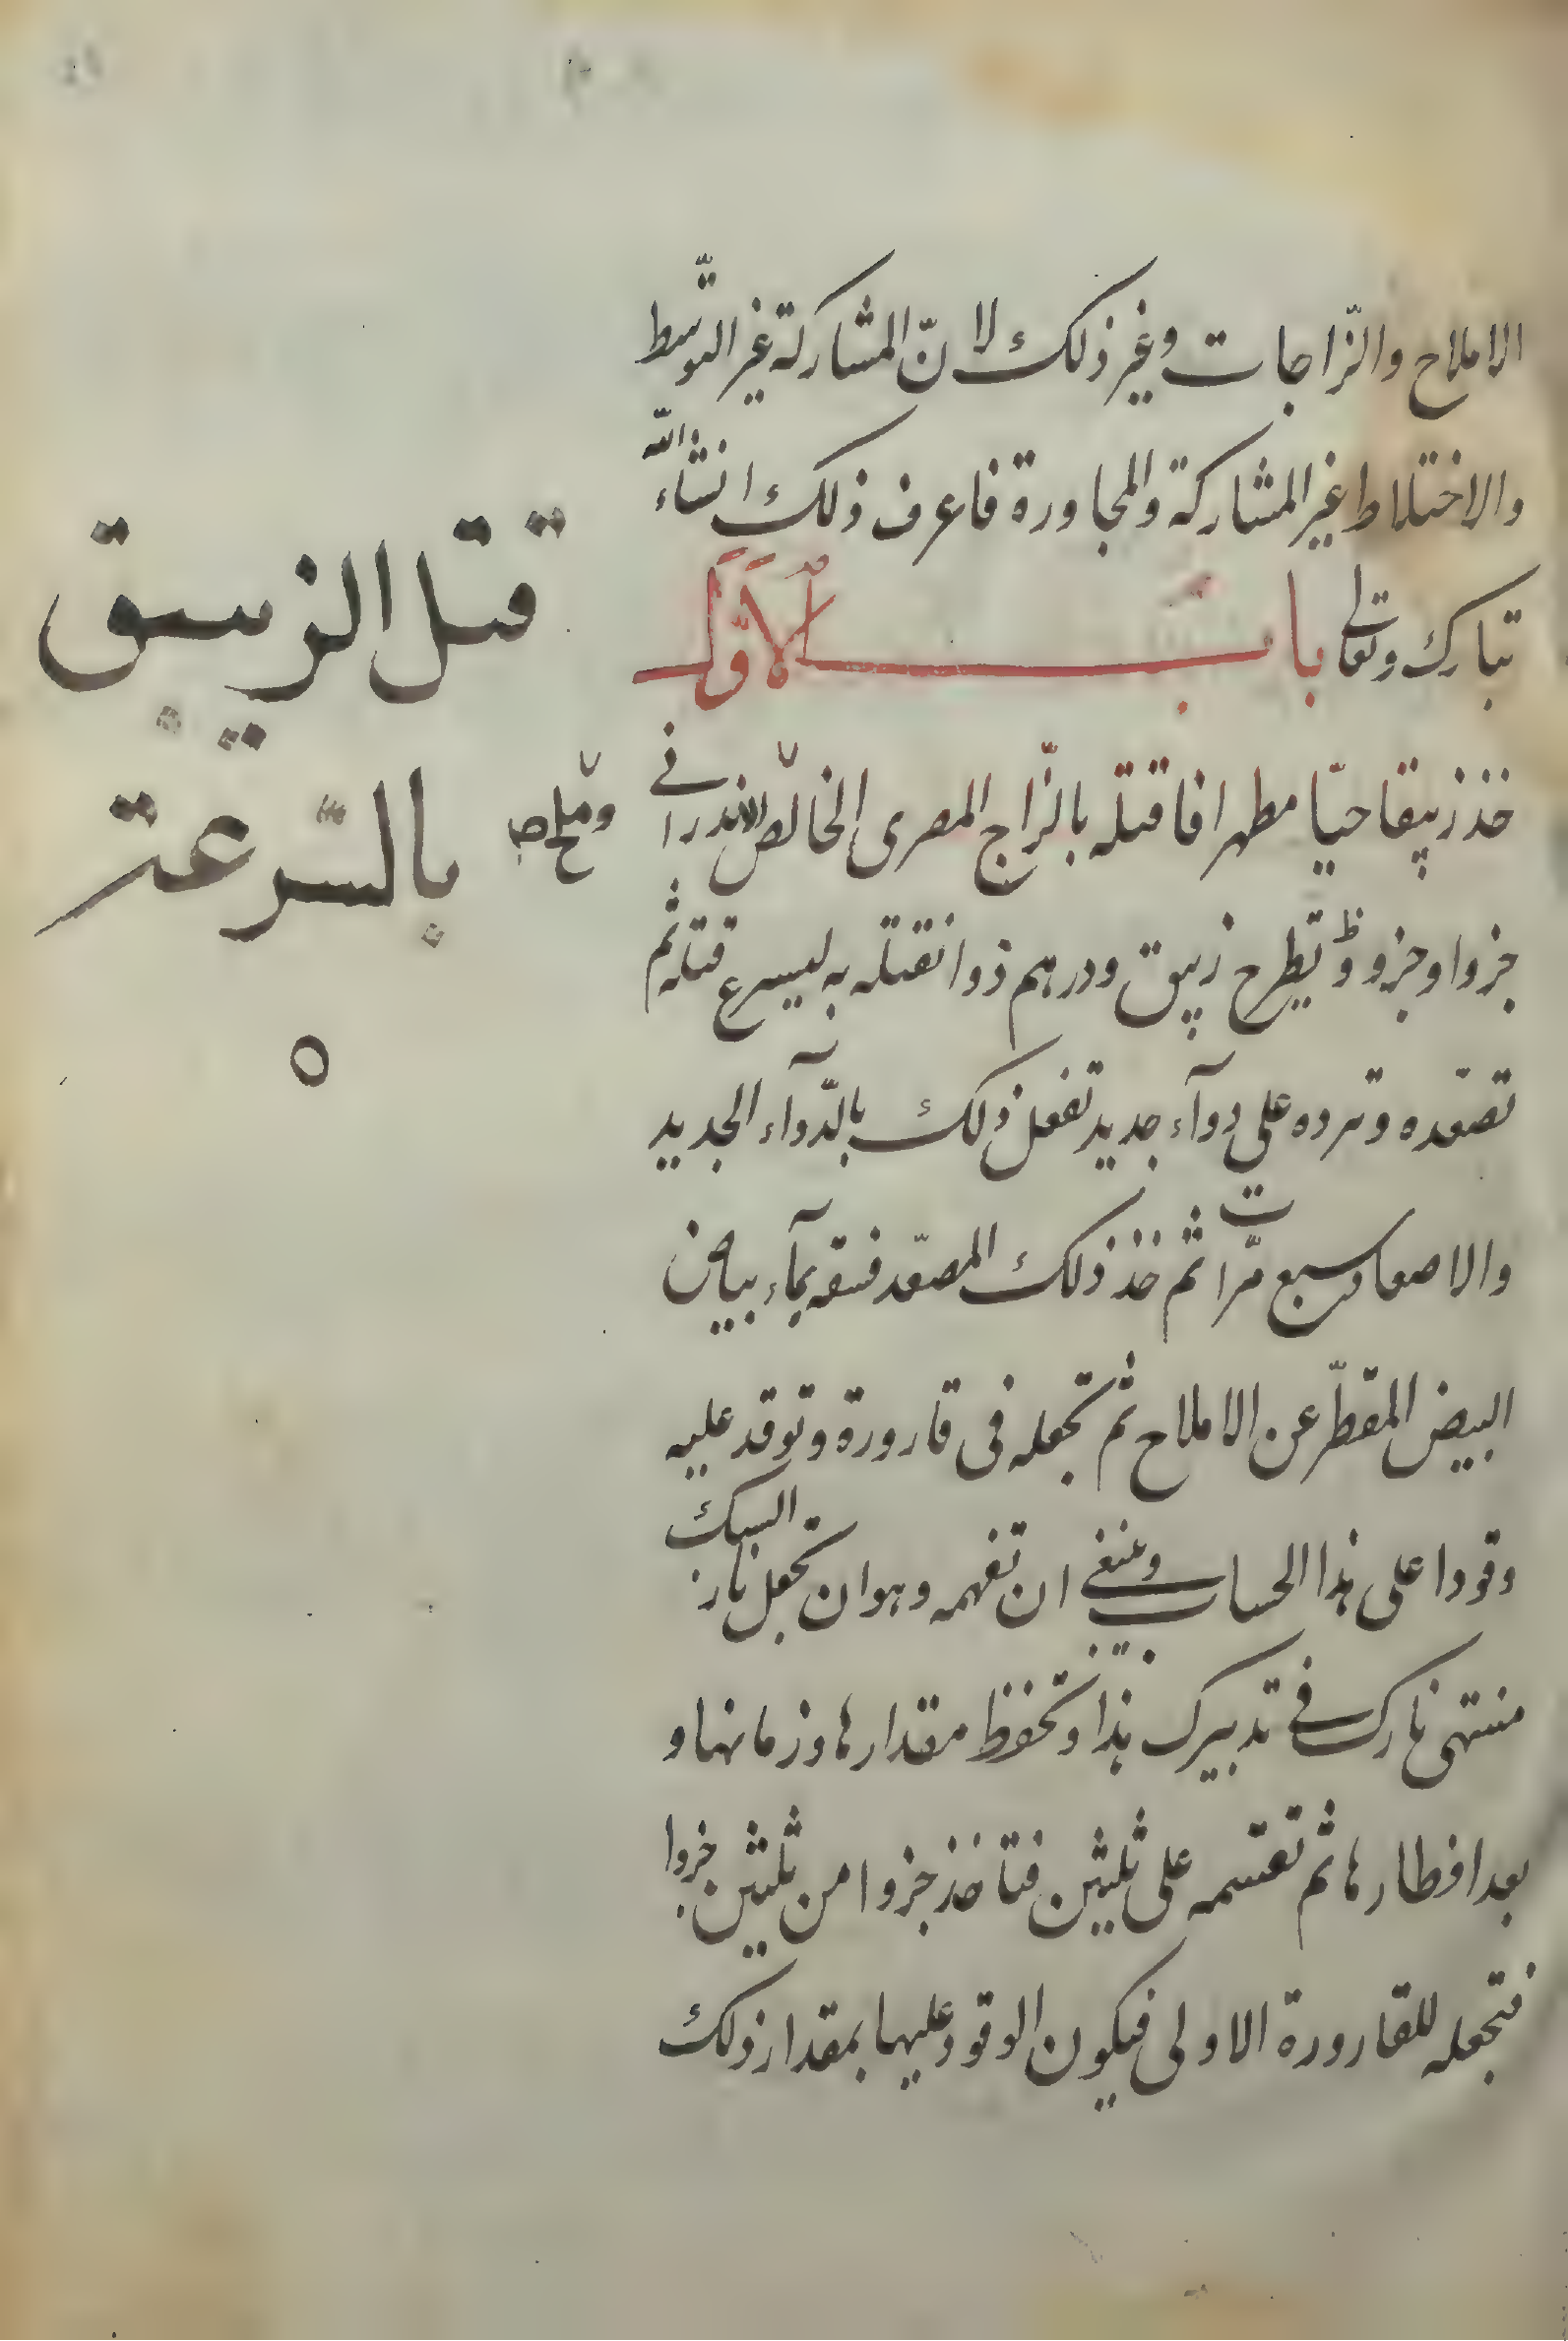 الاملاح والزّاجات وغير ذلك لانّ المشاركة غير التوسّط
والاختلاط غير المشاركة والمجاورة فاعرف ذلك انشاء الله
تبارك وتعالى باب الاَوَّلَ
خذ زيبقا حيّا مطهرا فاقتله بالزّاج المصرى الخالص الاندرانى
وملح صح
جزوا وجزو وتطرح زيبق ودرهم ذوا نقتله به ليسرع قتله ثم
تصعّده وترده على دوآء جديد تفعل ذلك بالدّوآء الجديد
والاصعاد سبع مّرات ثم خذ ذلك المصعّد فسقه بمآء بياض
البيض المقطّر عن الاملاح ثم تجعله فى قارورة وتوقد عليه
وقودا على هذا الحساب وينبغى ان تفهمه وهو ان تجعل نار السبك
منتهى نارك فى تدبيرك هذا وتحفظ مقدارها وزمانها و
بعد افطارها ثم تقسمه على ثلثين فتاخذ جزوا من ثلثين جزوا
فتجعله للقارورة الاولى فيكون الوقود عليها بمقدار ذلك
قتل الزيبق
بالسّرعة